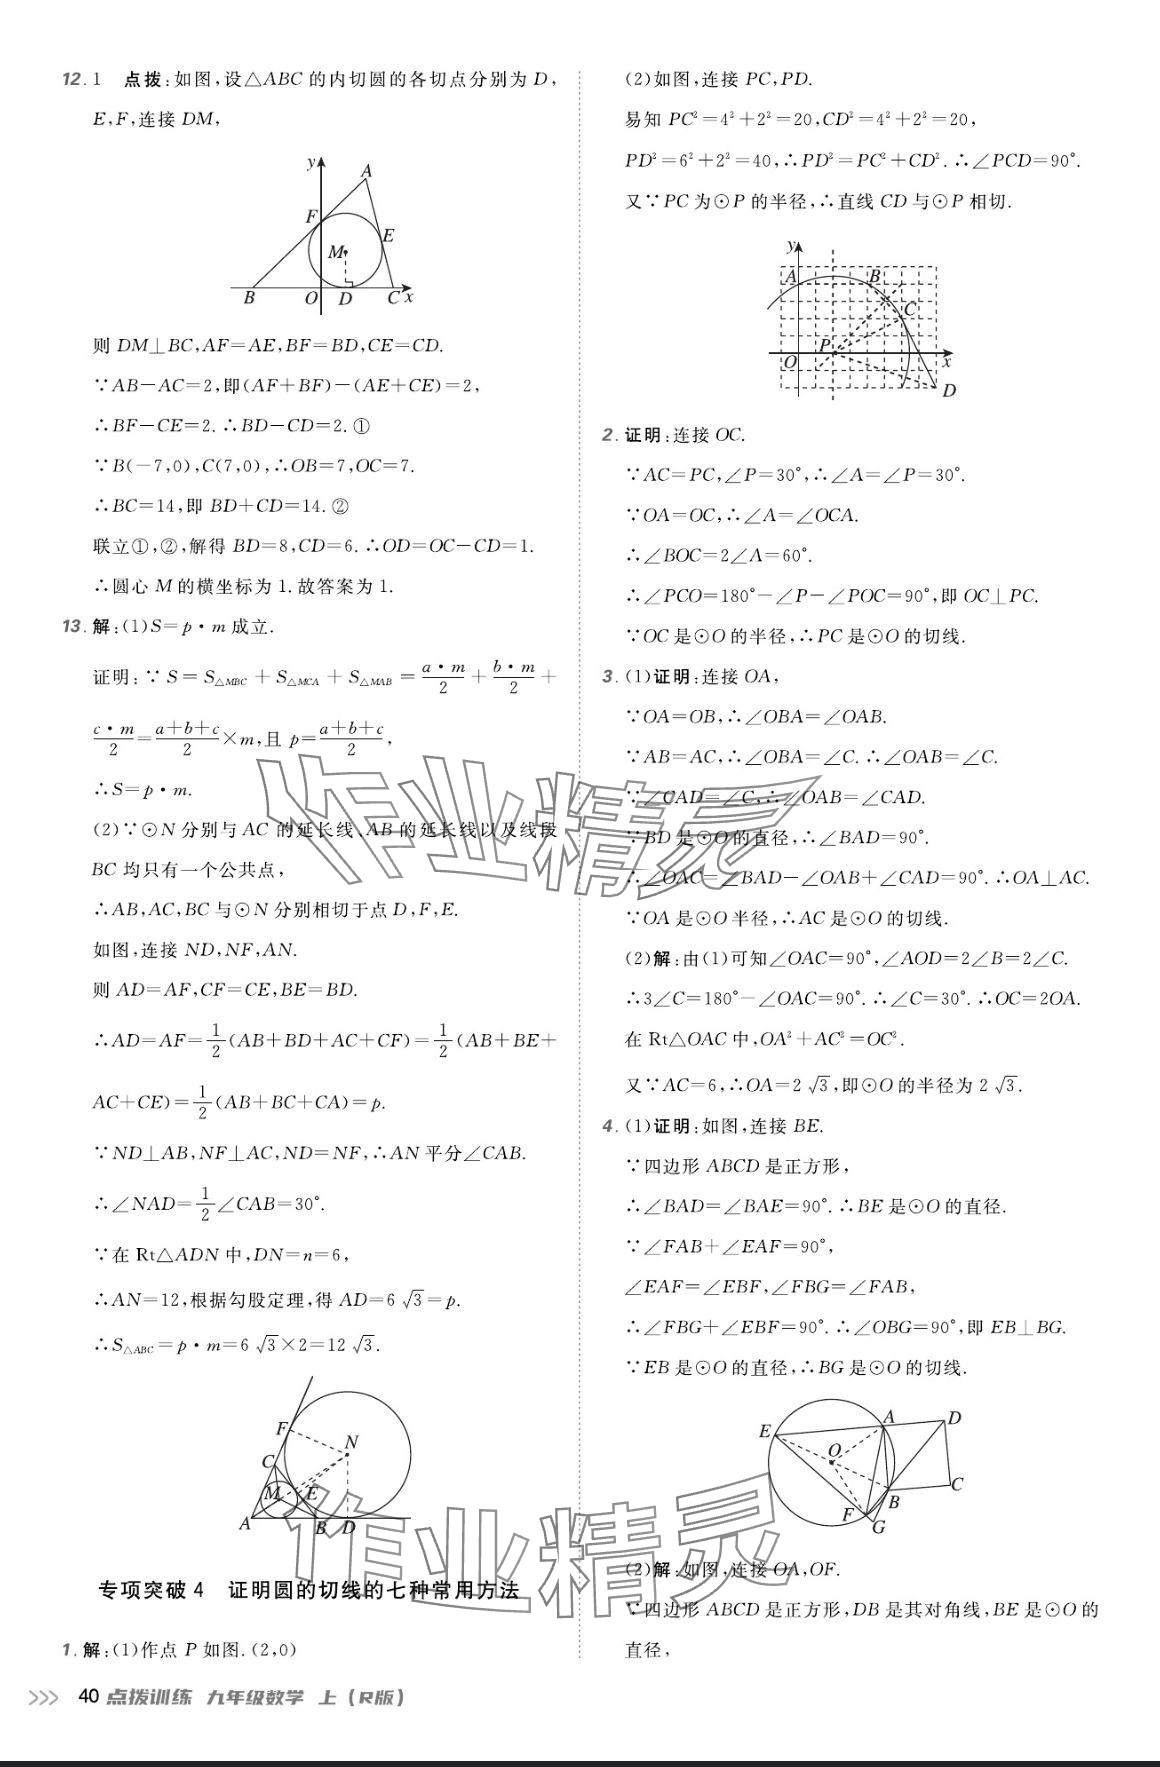 12. 1 点拨:如图,设△ABC 的内切圆的各切点分别为 D,
E,F,连接 DM,
y
A
F
E
M
B
O
D
C
x
则 DM⊥BC,AF=AE,BF=BD,CE=CD.
∵AB−AC=2,即(AF+BF)−(AE+CE)=2,
∴BF−CE=2. ∴BD−CD=2. ①
∵B(−7,0),C(7,0),∴OB=7,OC=7.
∴BC=14,即 BD+CD=14. ②
联立①,②,解得 BD=8,CD=6. ∴OD=OC−CD=1.
∴圆心 M 的横坐标为 1. 故答案为 1.
13. 解:(1)S=p·m 成立.
证明:∵ S = S△MBC + S△MCA + S△MAB = a·m/2 + b·m/2 +
c·m/2 = (a+b+c)/2 ×m,且 p=(a+b+c)/2,
∴S=p·m.
(2)∵⊙N 分别与 AC 的延长线、AB 的延长线以及线段
BC 均只有一个公共点,
∴AB,AC,BC 与⊙N 分别相切于点 D,F,E.
如图,连接 ND,NF,AN.
则 AD=AF,CF=CE,BE=BD.
∴AD=AF=1/2(AB+BD+AC+CF)=1/2(AB+BE+
AC+CE)=1/2(AB+BC+CA)=p.
∵ND⊥AB,NF⊥AC,ND=NF,∴AN 平分∠CAB.
∴∠NAD=1/2∠CAB=30°.
∵在 Rt△ADN 中,DN=n=6,
∴AN=12,根据勾股定理,得 AD=6√3=p.
∴S△ABC=p·m=6√3×2=12√3.
F
N
C
M
E
A
B
D
专项突破 4 证明圆的切线的七种常用方法
1. 解:(1)作点 P 如图. (2,0)
(2)如图,连接 PC,PD.
易知 PC²=4²+2²=20,CD²=4²+2²=20,
PD²=6²+2²=40,∴PD²=PC²+CD². ∴∠PCD=90°.
又∵PC 为⊙P 的半径,∴直线 CD 与⊙P 相切.
y
A
B
C
O
P
x
D
2. 证明:连接 OC.
∵AC=PC,∠P=30°,∴∠A=∠P=30°.
∵OA=OC,∴∠A=∠OCA.
∴∠BOC=2∠A=60°.
∴∠PCO=180°−∠P−∠POC=90°,即 OC⊥PC.
∵OC 是⊙O 的半径,∴PC 是⊙O 的切线.
3. (1)证明:连接 OA,
∵OA=OB,∴∠OBA=∠OAB.
∵AB=AC,∴∠OBA=∠C. ∴∠OAB=∠C.
∵∠CAD=∠C,∴∠OAB=∠CAD.
∵BD 是⊙O 的直径,∴∠BAD=90°.
∴∠OAC=∠BAD−∠OAB+∠CAD=90°. ∴OA⊥AC.
∵OA 是⊙O 半径,∴AC 是⊙O 的切线.
(2)解:由(1)可知∠OAC=90°,∠AOD=2∠B=2∠C.
∴3∠C=180°−∠OAC=90°. ∴∠C=30°. ∴OC=2OA.
在 Rt△OAC 中,OA²+AC²=OC².
又∵AC=6,∴OA=2√3,即⊙O 的半径为 2√3.
4. (1)证明:如图,连接 BE.
∵四边形 ABCD 是正方形,
∴∠BAD=∠BAE=90°. ∴BE 是⊙O 的直径.
∵∠FAB+∠EAF=90°,
∠EAF=∠EBF,∠FBG=∠FAB,
∴∠FBG+∠EBF=90°. ∴∠OBG=90°,即 EB⊥BG.
∵EB 是⊙O 的直径,∴BG 是⊙O 的切线.
A
D
E
O
B
C
F
G
(2)解:如图,连接 OA,OF.
∵四边形 ABCD 是正方形,DB 是其对角线,BE 是⊙O 的
直径,
作业精灵
作业精灵
40 点拨训练 九年级数学 上(R版)